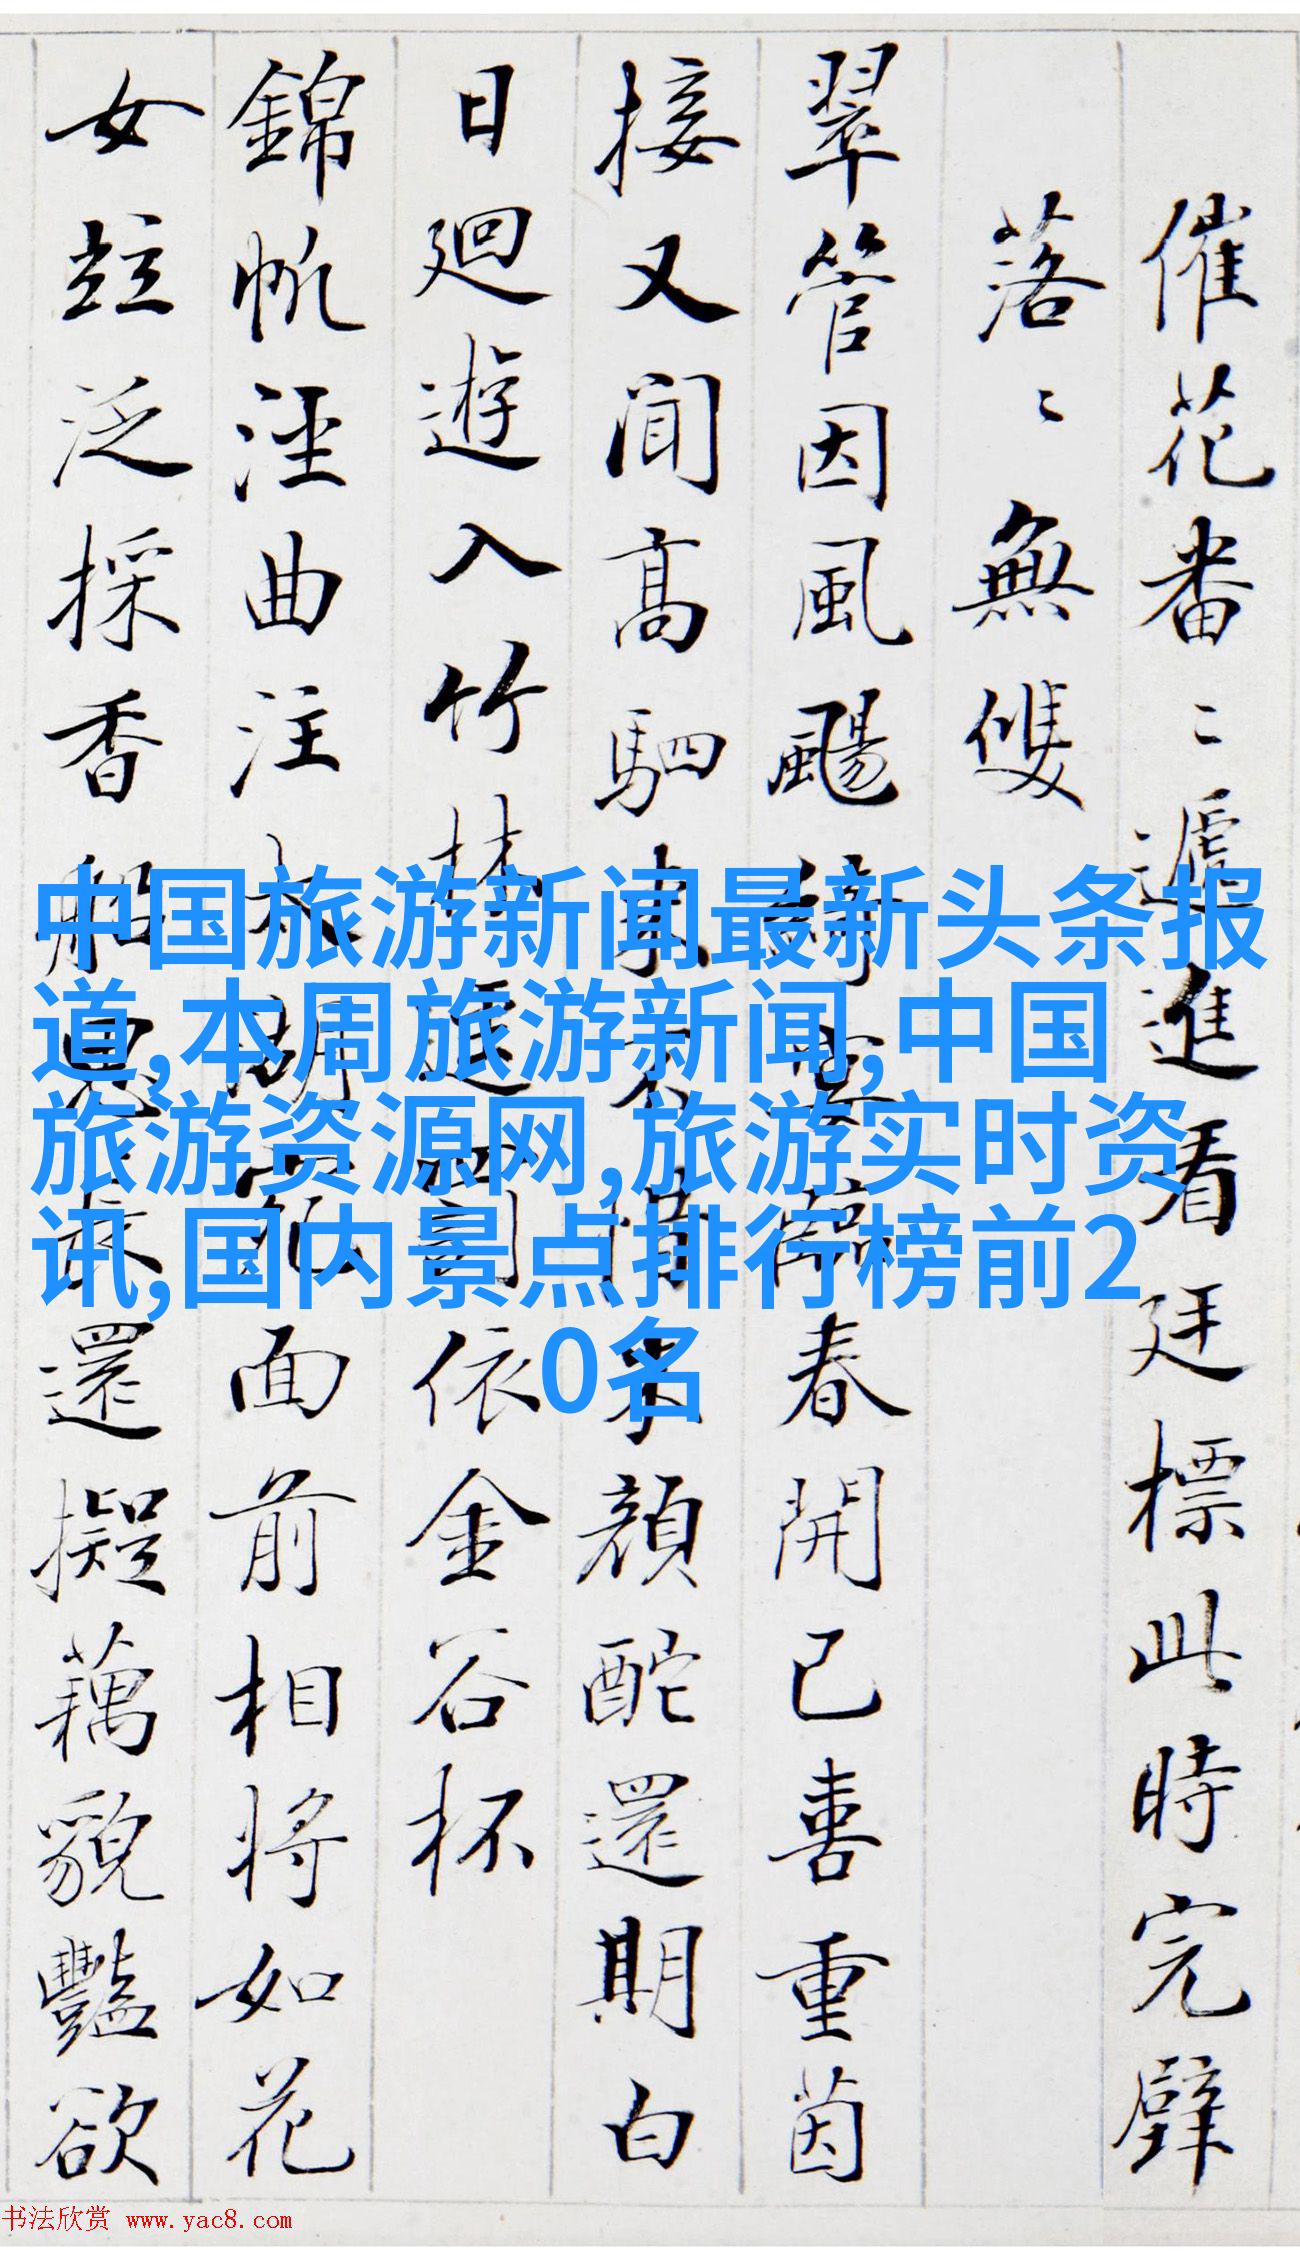 催花番〻遞進看廷標此時完璧
落〻無雙
翠管因風颺春開已喜重茵
接又聞高駟顔酡還期白
日廻遊入竹林依金谷杯
錦帆淫曲注面前相將如花
女竝泛採香船還擬藕貌豔欲
中国旅游新闻最新头条报
道,本周旅游新闻,中国
旅游资源网,旅游实时资
讯,国内景点排行榜前2
0名
书法欣赏 www.yac8.com